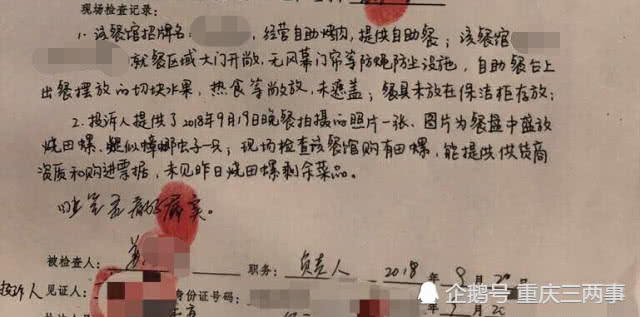 现场检查记录：
1. 该餐馆招牌名：，经营自助烤肉，提供自助餐；该餐馆
就餐区域大门开敞，无风幕门帘等防蝇防尘设施，自助餐台上
出餐摆放的切块水果，热食等敞放，未遮盖；餐具未放在保洁柜存放；
2. 投诉人提供了2018年9月19日晚餐拍摄的照片一张、图片为餐盘中盛放
烧田螺、疑似蟑螂虫子一只；现场检查该餐馆购有田螺，能提供供货商
资质和购进票据，未见昨日烧田螺剩余菜品。
属实。
被检查人： 职务：负责人 2018年9月20
投诉人 见证人： 身份证号码： 年9月20
企鹅号 重庆三两事